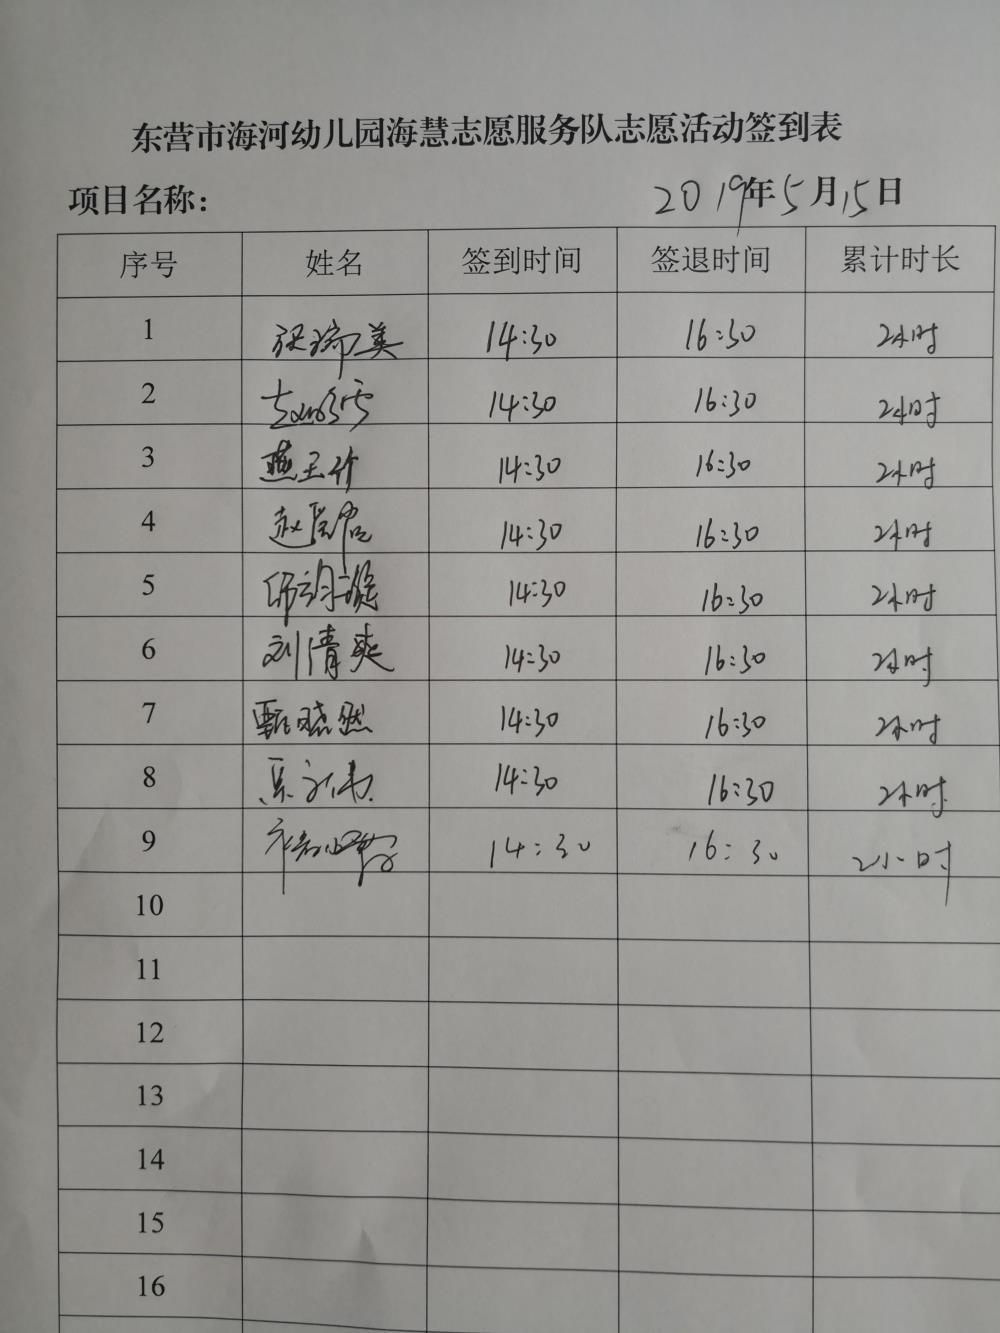 东营市海河幼儿园海慧志愿服务队志愿活动签到表
项目名称： 2019年5月15日
序号 姓名 签到时间 签退时间 累计时长
1 张瑞美 14:30 16:30 2小时
2 14:30 16:30 2小时
3 燕玉竹 14:30 16:30 2小时
4 14:30 16:30 2小时
5 14:30 16:30 2小时
6 刘清爽 14:30 16:30 2小时
7 甄晓然 14:30 16:30 2小时
8 14:30 16:30 2小时
9 14:30 16:30 2小时
10
11
12
13
14
15
16